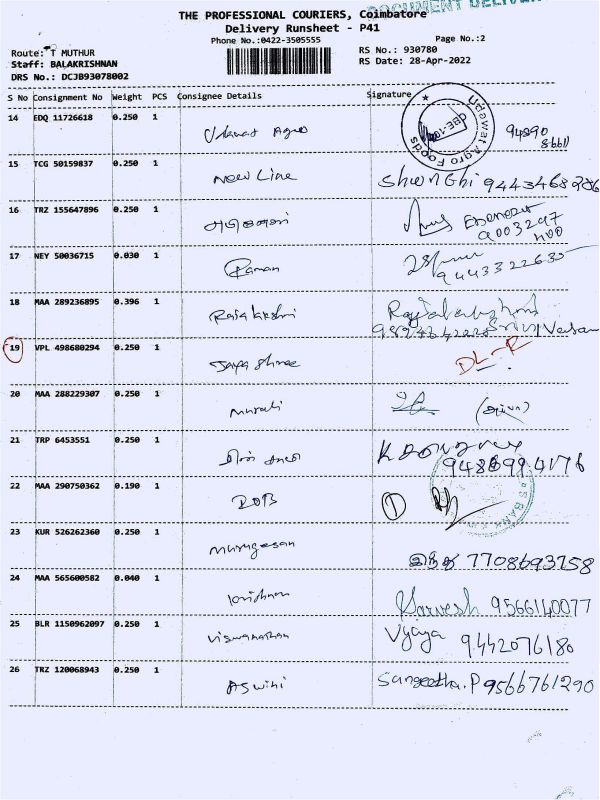 THE PROFESSIONAL COURIERS, Coimbatore
DOCUMENT DELIVER
Delivery Runsheet - P41
Phone No.:0422-3505555
Page No.:2
Route: T MUTHUR
RS No.: 930780
Staff: BALAKRISHNAN
RS Date: 28-Apr-2022
DRS No.: DCJB93078002
S No Consignment No Weight PCS Consignee Details Signature
14 EDQ 11726618 0.250 1 Udawat Agro 94890
Udawat Agro Foods
CBE-10
15 TCG 50159837 0.250 1 New Line 9443468286
16 TRZ 155647896 0.250 1 Ebenezer
17 NEY 50036715 0.030 1 Raman 9443322635
18 MAA 289236895 0.396 1 Rajalakshmi
19 VPL 498680294 0.250 1 Jaya Shree DL-R
20 MAA 288229307 0.250 1 Murali
21 TRP 6453551 0.250 1
22 MAA 290750362 0.190 1 IOB 1
23 KUR 526262360 0.250 1 Murugesan இந்து 7708693758
24 MAA 565600582 0.040 1 Krishnan Harvesh 9566140077
25 BLR 1150962097 0.250 1 Viswanathan Vijaya 9442076180
26 TRZ 120068943 0.250 1 Aswini Sangeetha.P 9566761290